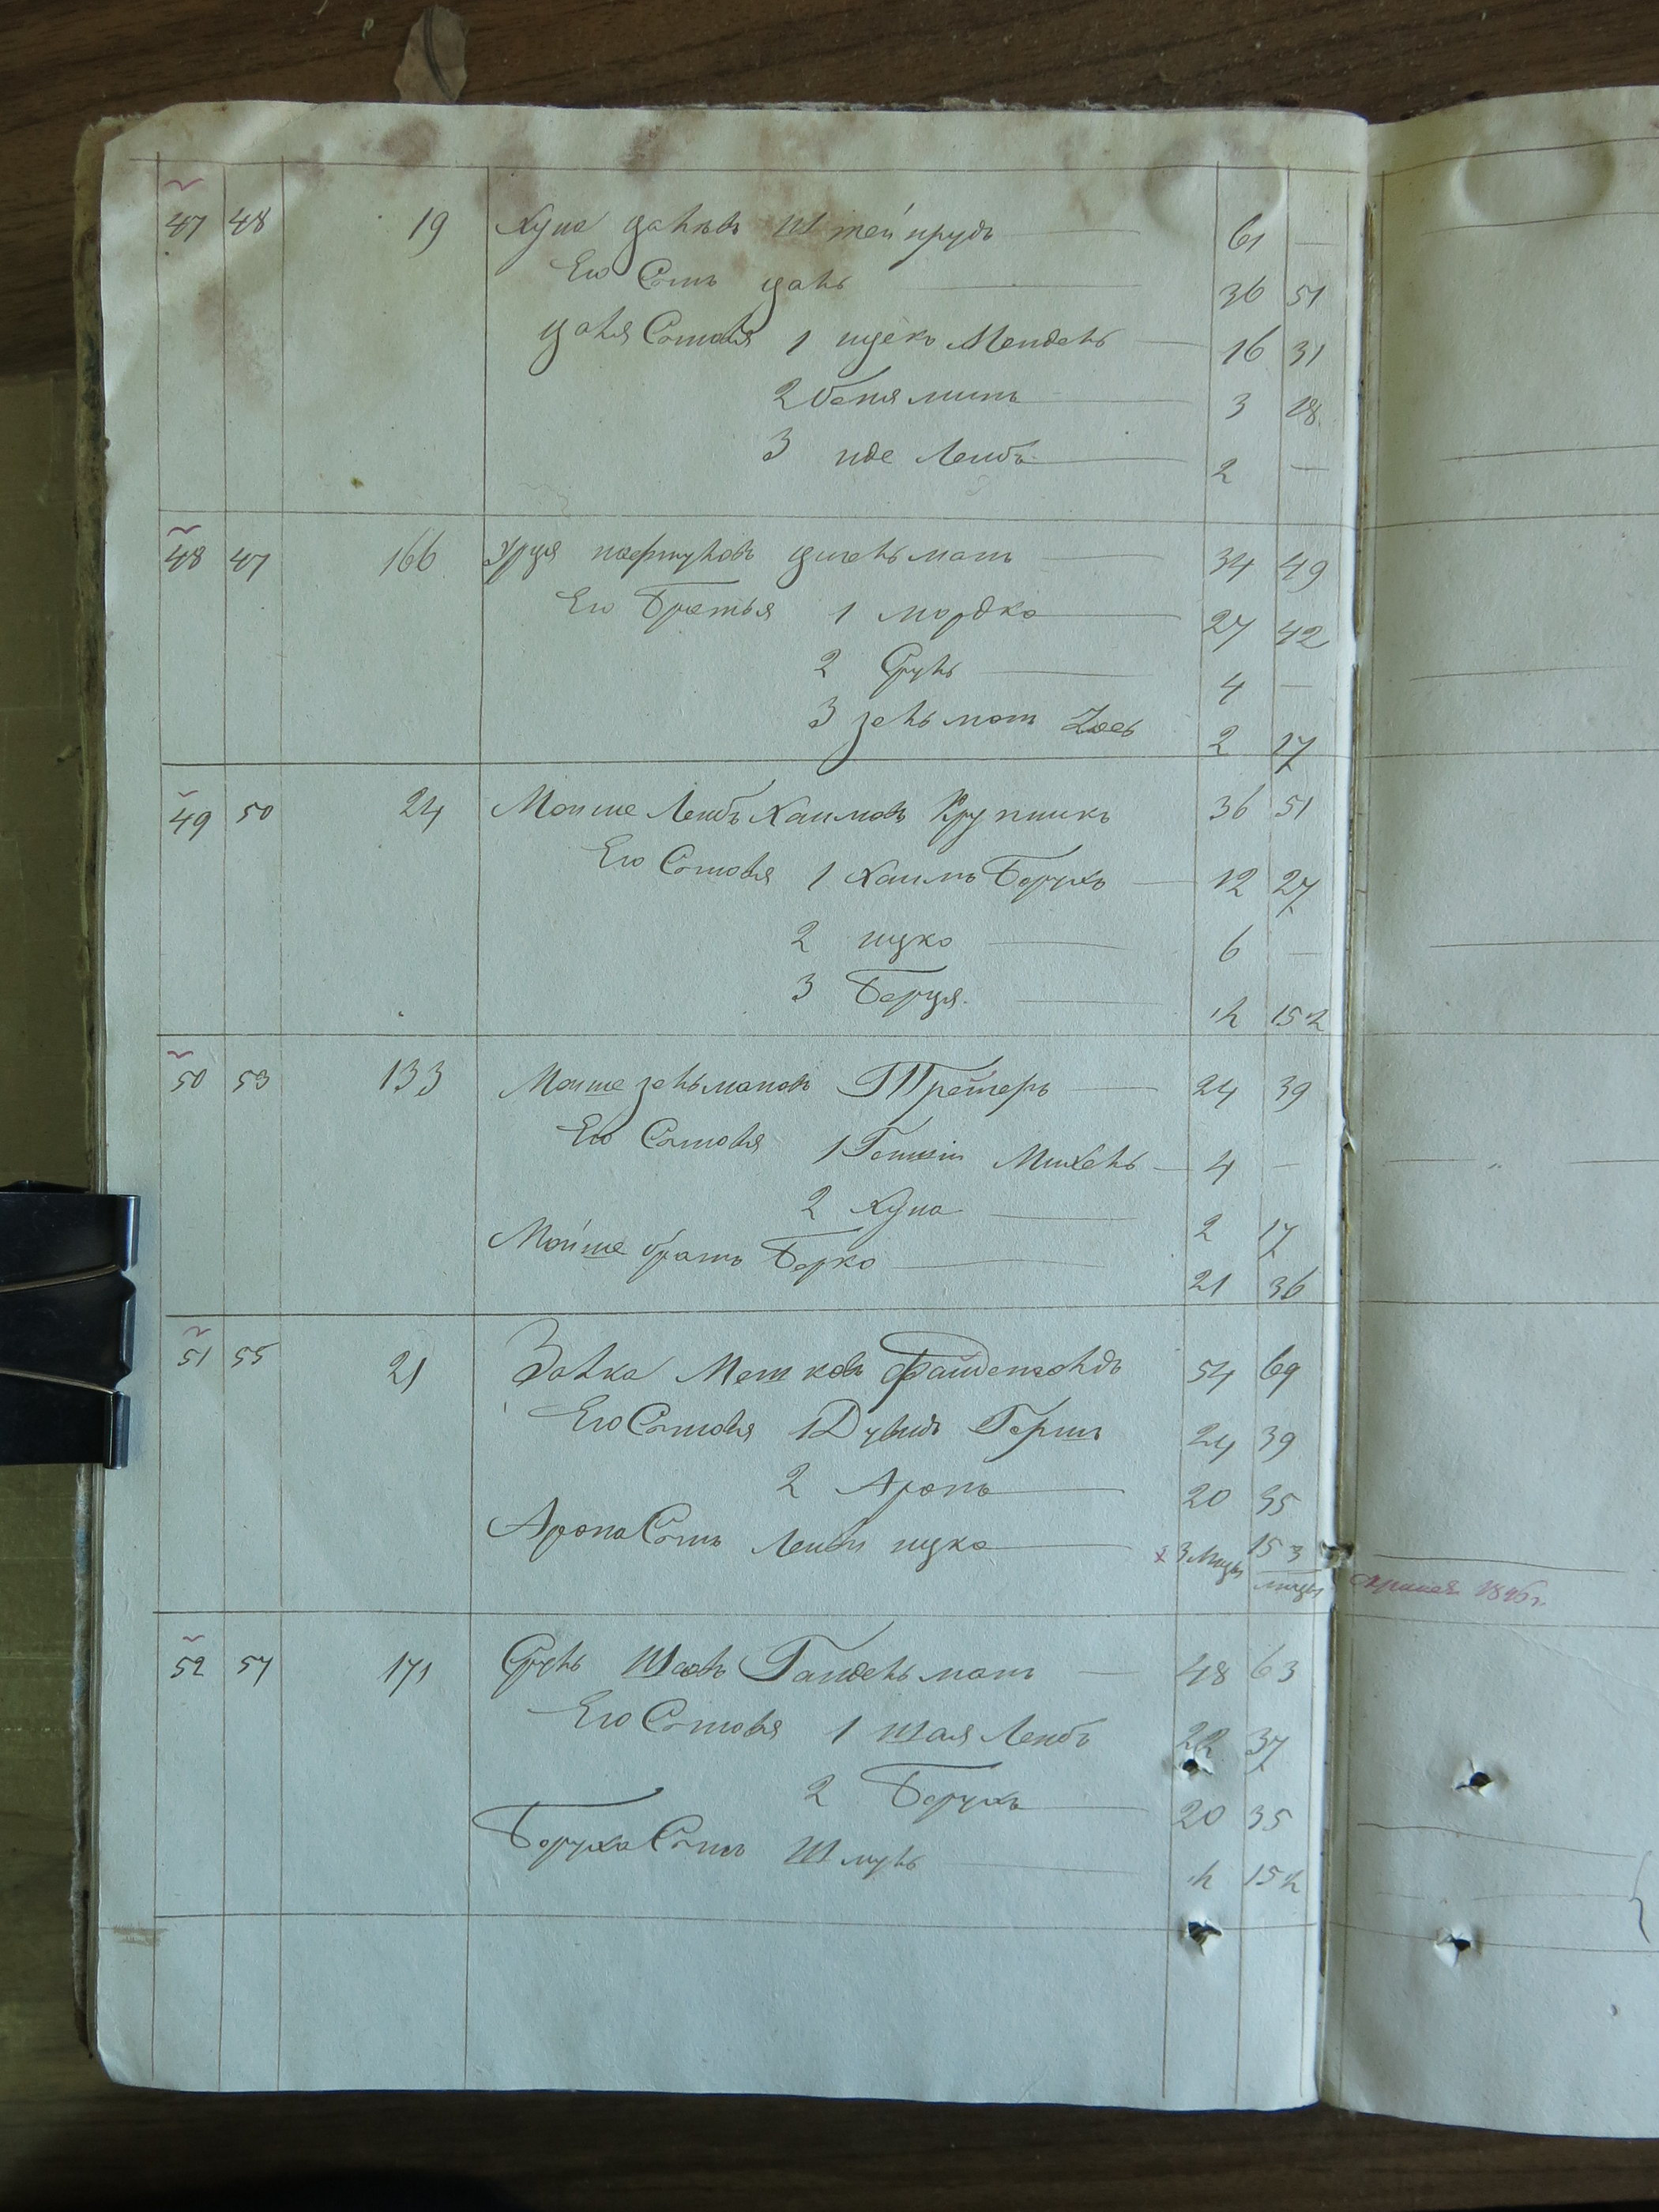 47 48 19 Хуна Цалевъ Штейнрудъ 61 —
Его Сынъ Цаль 36 51
Цаля Сыновья 1 Ицекъ Мендель 16 31
2 Беняминъ 3 18
3 Иде Лейбъ 2 —
48 47 166 34 49
Его Братья 1 Мордко 27 42
2 Сруль 4 —
3 Зельманъ 2 17
49 50 24 Мойше Лейбъ Хаимовъ Крупникъ 36 51
Его Сыновья 1 Хаимъ Борухъ 12 27
2 Ицко 6 —
3 Берця ½ 15 ½
50 53 133 Мойше Зельмановъ Третеръ 24 39
Его Сыновья 1 Михель 4 —
2 Хуна 2 17
Мойше братъ Берко 21 36
51 55 21 Волка Мошковъ Файденгольдъ 54 69
Его Сыновья 1 Дувидъ Гершъ 24 39
2 Аронъ 20 35
Арона Сынъ Лейбъ Ицко 3 Мѣсяц 15 3 мѣсяц
52 57 171 Сруль Шаевъ Гандельманъ 48 63
Его Сыновья 1 Шая Лейбъ 22 37
2 Борухъ 20 35
Боруха Сынъ Шмуль ½ 15 ½